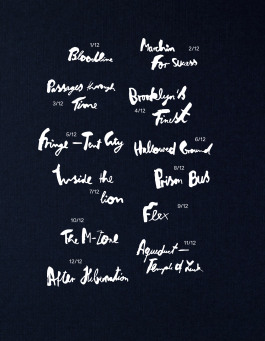 1/12
Bloodline
2/12
Machin
For Success
Passages through
3/12
Time
Brooklyn's
4/12
Finest
5/12
Fringe — Tent City
6/12
Hallowed Ground
Inside the
7/12
lion
8/12
Prison Bus
9/12
Flex
10/12
The M-Zone
11/12
Aqueduct —
Temple of
12/12
After Hibernation